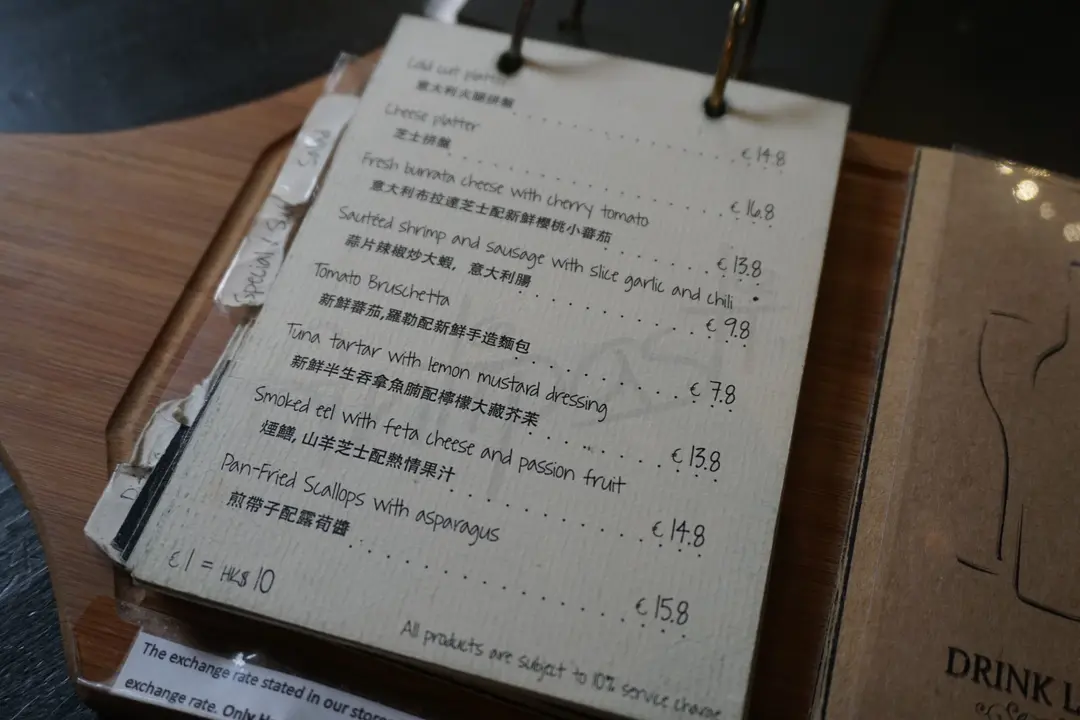 Cold cut platter
意大利火腿拼盤
€ 14.8
Cheese platter
芝士拼盤
€ 16.8
Fresh burrata cheese with cherry tomato
意大利布拉達芝士配新鮮櫻桃小蕃茄
€ 13.8
Sautéed shrimp and sausage with slice garlic and chili
蒜片辣椒炒大蝦, 意大利腸
€ 9.8
Tomato Bruschetta
新鮮蕃茄,羅勒配新鮮手造麵包
€ 7.8
Tuna tartar with lemon mustard dressing
新鮮半生吞拿魚腩配檸檬大藏芥茉
€ 13.8
Smoked eel with feta cheese and passion fruit
煙鱔, 山羊芝士配熱情果汁
€ 14.8
Pan-Fried Scallops with asparagus
煎帶子配露荀醬
€ 15.8
€ 1 = HK$ 10
All products are subject to 10% service charge
The exchange rate stated in our store
exchange rate. Only
Especial / Sm
DRINK L